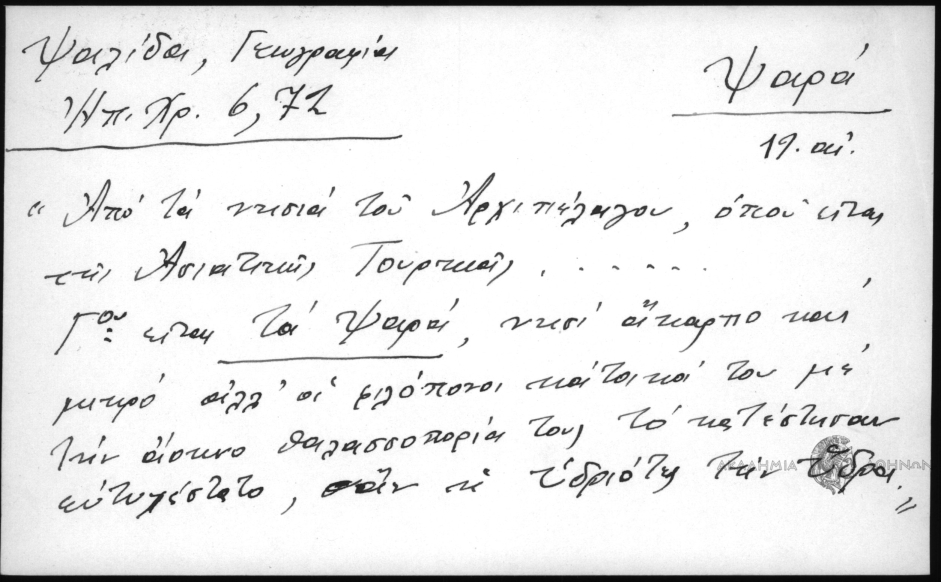 Ψαλίδα, Γεωγραφία
Ἠπ. Χρ. 6, 72
Ψαρά
19. αἰ.
"Ἀπό τά νησιά τοῦ Ἀρχιπελάγου, ὁποῦ εἶναι
τῆς Ἀσιατικῆς Τουρκιᾶς . . . . . .
Γον εἶναι τά Ψαρά, νησί ἄκαρπο καί
μικρό ἀλλ' οἱ φιλόπονοι κάτοικοί του μέ
τήν ἄοκνο θαλασσοπορία τους τό κατέστησαν
εὐτυχέστατο, σάν οἱ Ὑδριότες τήν Ὕδρα."
ΑΚΑΔΗΜΙΑ ΑΘΗΝΩΝ